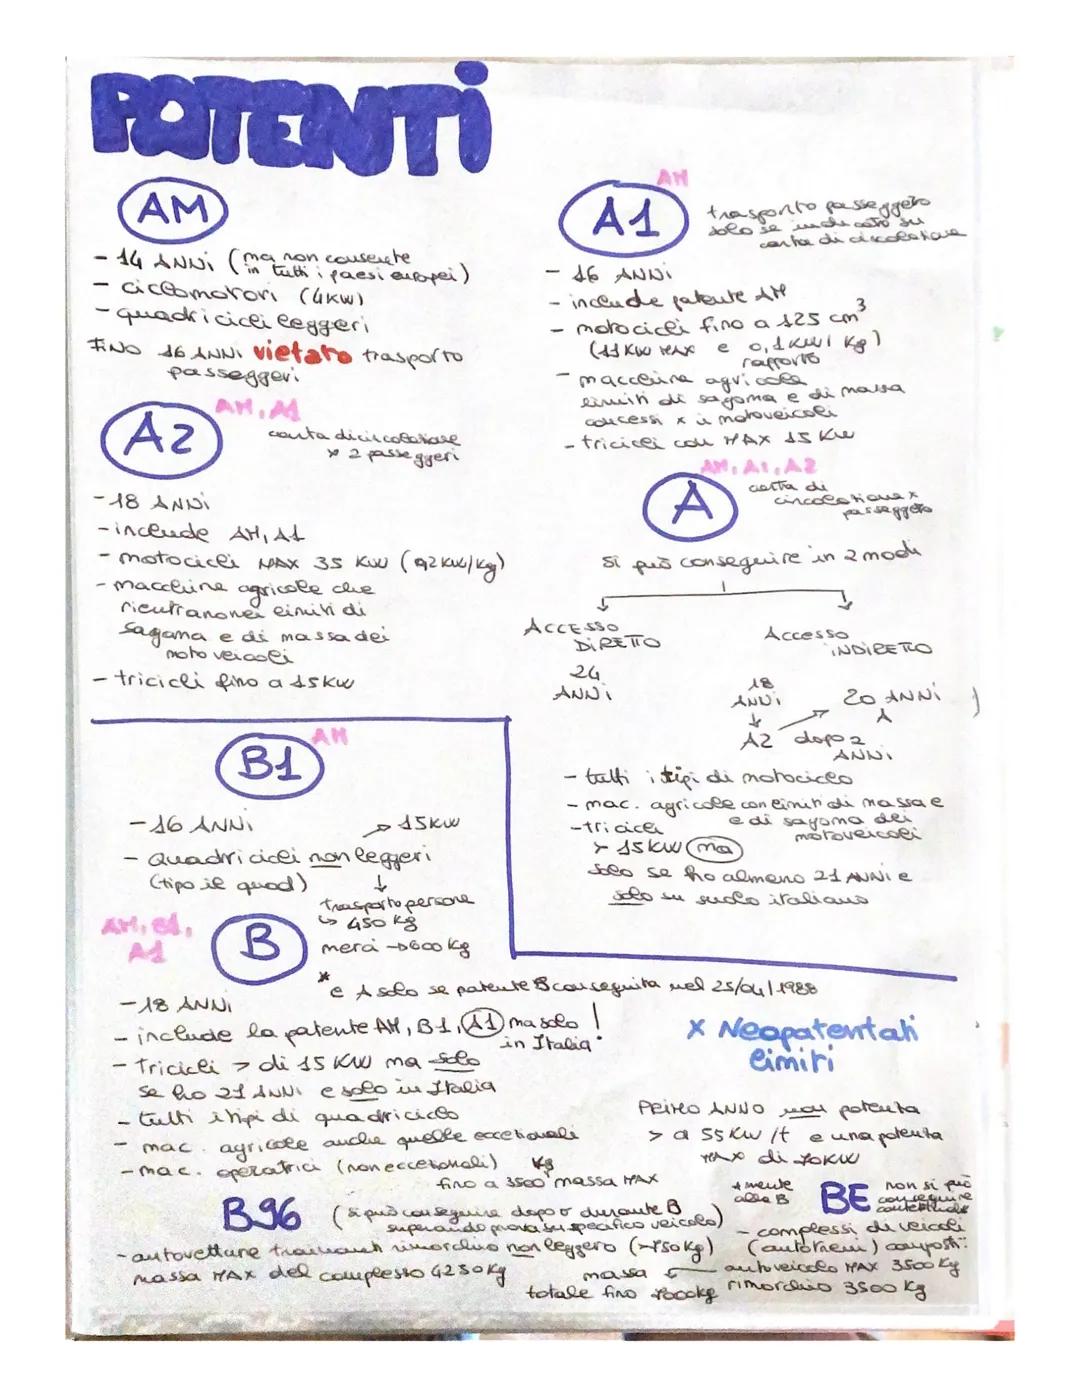 POTENTI
AM
- 14 ANNI (ma non consente
in tutti i paesi europei)
- ciclomotori (4KW)
- quadricicli leggeri
FINO 16 ANNI vietato trasporto
passeggeri
AM
A1
trasporto passeggero
solo se indicato su
carta di circolazione
- 16 ANNI
- include patente AM
- motocicli fino a 125 cm³
(11 KW MAX e 0,1 KW/ Kg)
rapporto
- macchine agricole
limiti di sagoma e di massa
concessi x i motoveicoli
- tricicli con MAX 15 KW
AM, A1
A2
carta di circolazione
x 2 passeggeri
- 18 ANNI
- include AM, A1
- motocicli MAX 35 KW (0,2 KW/Kg)
- macchine agricole che
rientrano nei limiti di
sagoma e di massa dei
motoveicoli
- tricicli fino a 15KW
AM, A1, A2
A
carta di
circolazione x
passeggero
si può conseguire in 2 modi
ACCESSO
DIRETTO
24
ANNI
Accesso
INDIRETTO
18
ANNI
A2
dopo 2
ANNI
20 ANNI
A
- tutti i tipi di motociclo
- mac. agricole con limiti di massa e
e di sagoma dei
motoveicoli
- tricicli
> 15 KW ma
solo se ho almeno 21 ANNI e
solo su suolo italiano
AM
B1
- 16 ANNI
→ 15KW
- Quadricicli non leggeri
(tipo il quad)
trasporto persone
↳ 450 Kg
merci → 600 Kg
AM, B1,
A1
B
* e A solo se patente B conseguita nel 25/04/1988
- 18 ANNI
- include la patente AM, B1, A1 ma solo
in Italia !
- Tricicli > di 15 KW ma solo
se ho 21 ANNI e solo in Italia
- tutti i tipi di quadriciclo
- mac. agricole anche quelle eccezionali
- mac. operatrici (non eccezionali)
fino a 3500 Kg massa MAX
x Neopatentati
limiti
PRIMO ANNO non potenza
> a 55 KW /t e una potenza
MAX di 70KW
B96 (si può conseguire dopo o durante B
superando prova su specifico veicolo)
- autovetture trainanti rimorchio non leggero (>750 Kg)
massa MAX del complesso 4250 Kg
alla B
BE
non si può
conseguire
- complessi di veicoli
(autotreni) composti:
autoveicolo MAX 3500 Kg
rimorchio 3500 Kg
massa
totale fino 7000kg